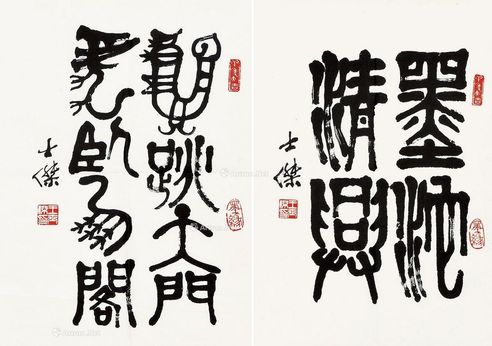 墨池
清興
士傑
龍跳天門
虎卧鳳閣
士傑